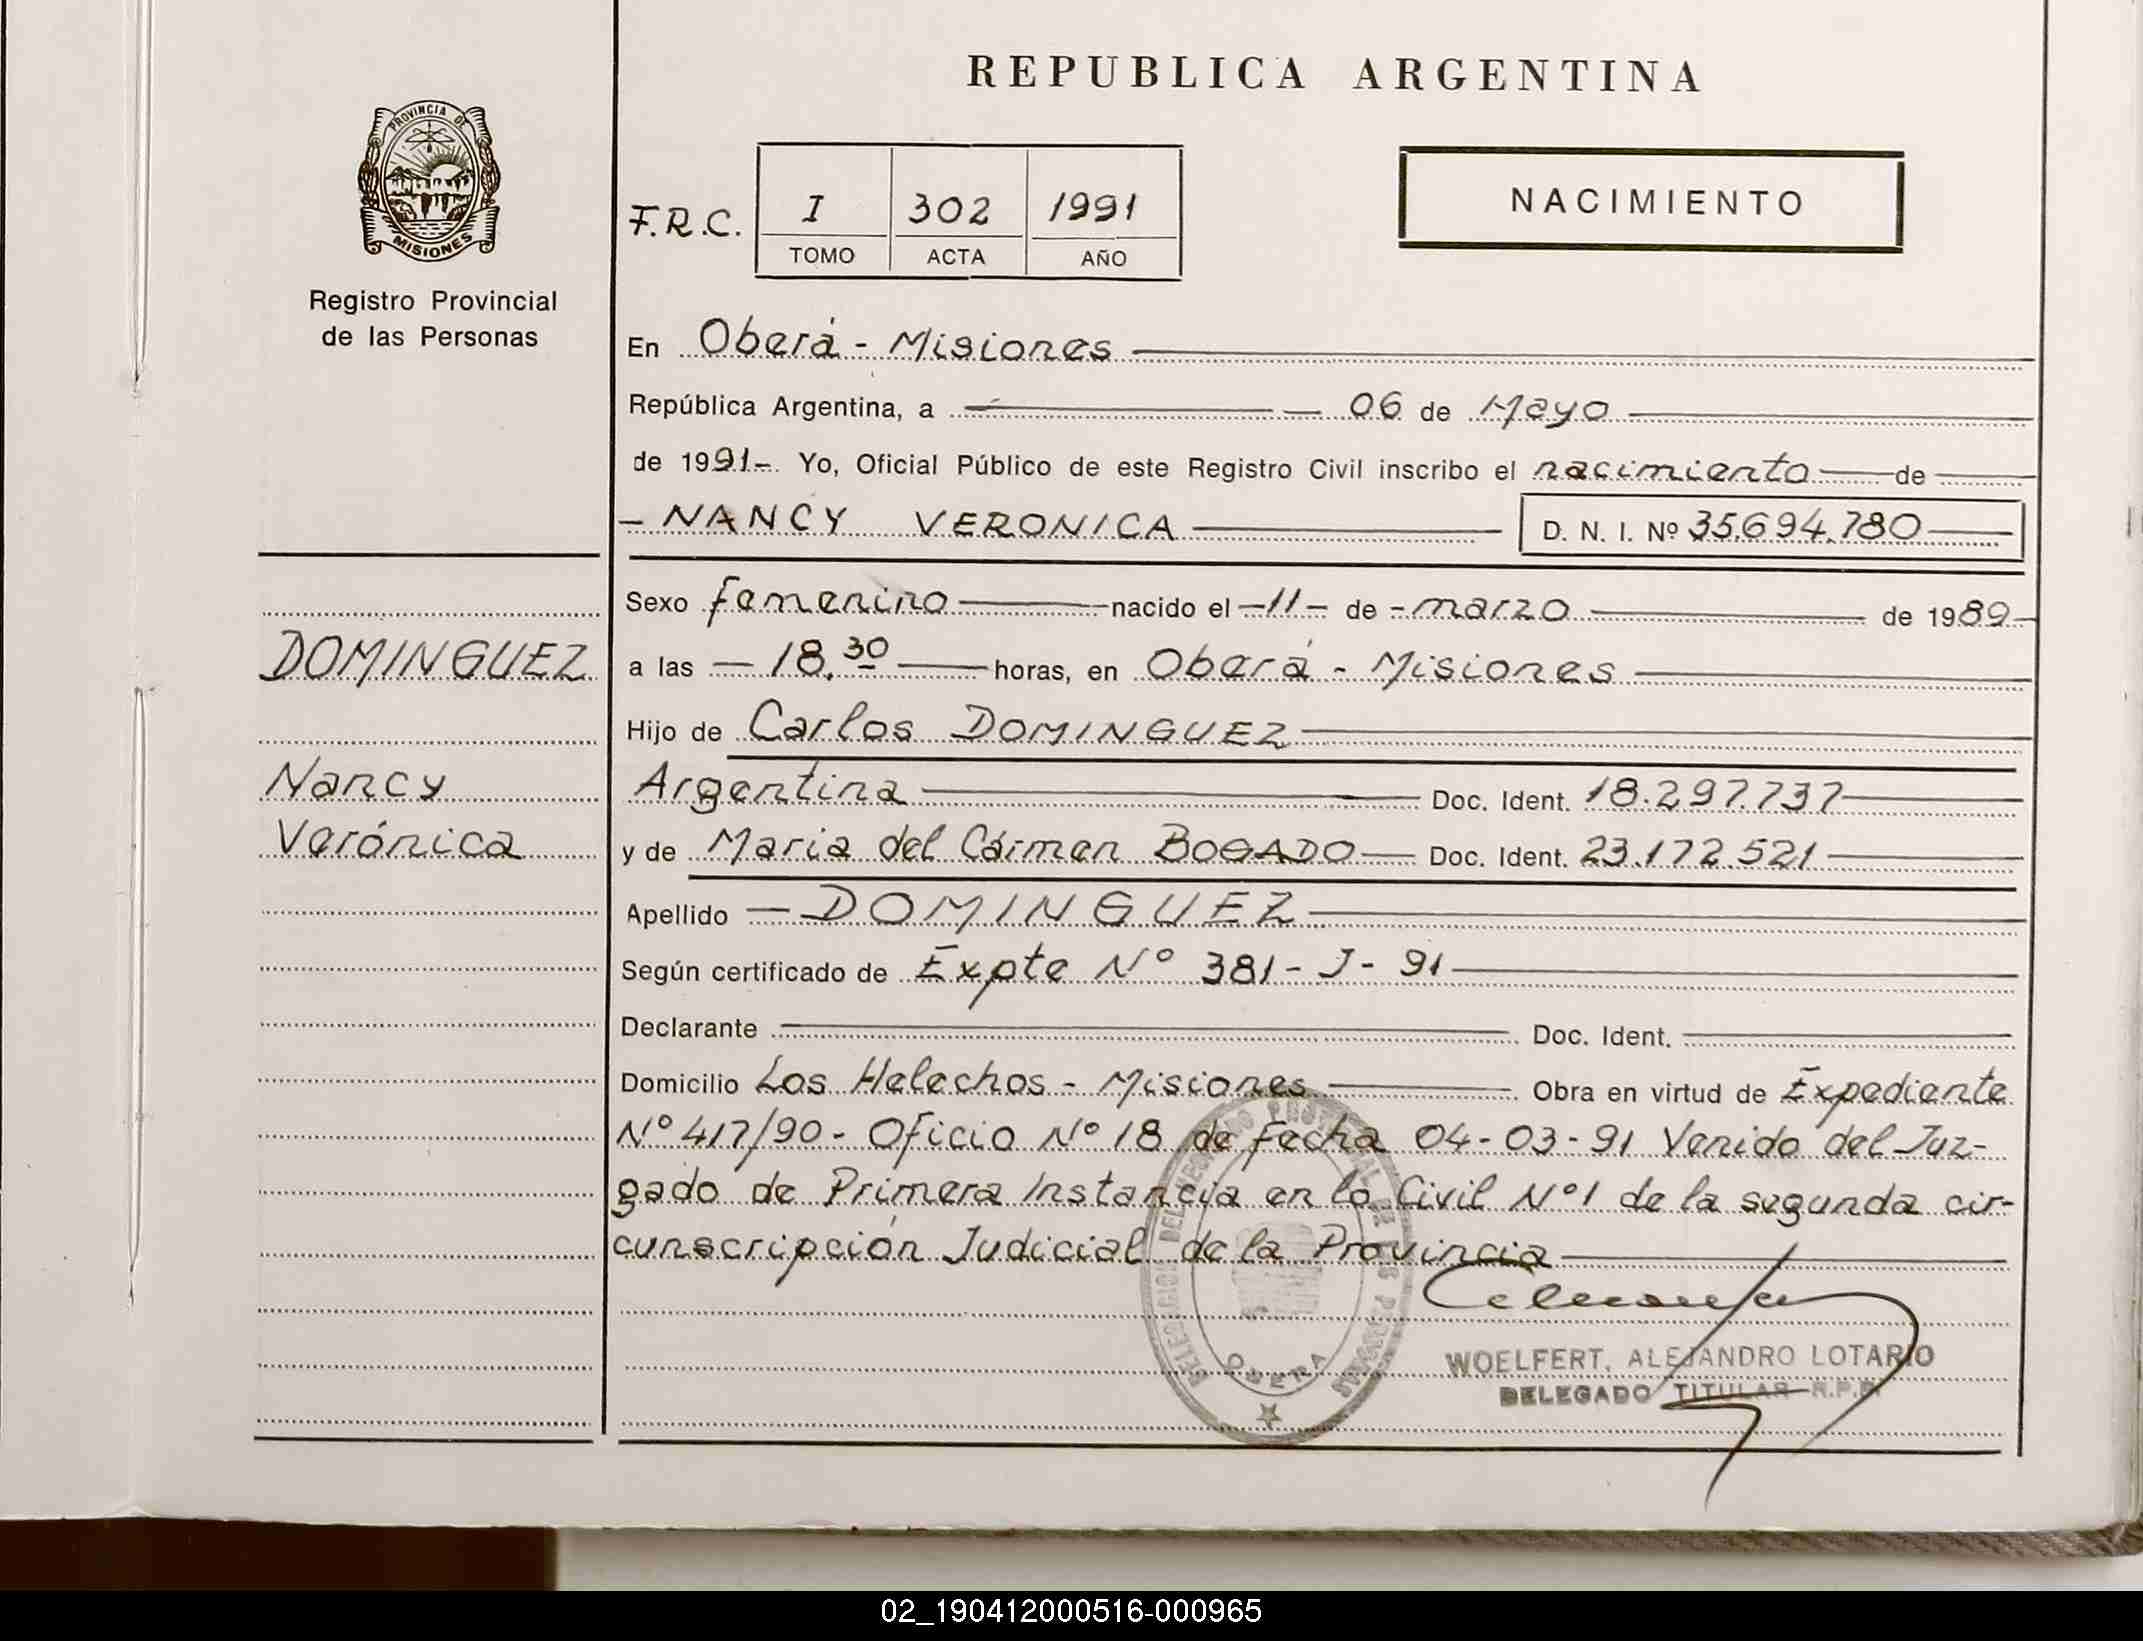 REPUBLICA ARGENTINA
PROVINCIA DE
MISIONES
Registro Provincial
de las Personas
F.R.C. I 302 1991
TOMO ACTA AÑO
NACIMIENTO
En Oberá - Misiones
República Argentina, a 06 de Mayo
de 1991- Yo, Oficial Público de este Registro Civil inscribo el nacimiento de
- NANCY VERONICA D. N. I. Nº 35.694.780
Sexo femenino nacido el -11- de - marzo de 1989
DOMINGUEZ
a las 18.30 horas, en Oberá - Misiones
Hijo de Carlos DOMINGUEZ
Nancy
Argentina Doc. Ident. 18.297.737
Verónica
y de Maria del Cármen BOGADO Doc. Ident. 23.172.521
Apellido - DOMINGUEZ
Según certificado de Expte Nº 381- J- 91
Declarante Doc. Ident.
Domicilio Los Helechos - Misiones Obra en virtud de Expediente
Nº 417/90- Oficio Nº 18 de fecha 04-03-91 Venido del Juz-
gado de Primera Instancia en lo Civil Nº1 de la segunda cir-
cunscripción Judicial de la Provincia
OBERA
WOELFERT, ALEJANDRO LOTARIO
DELEGADO TITULAR R.P.P.
02_190412000516-000965